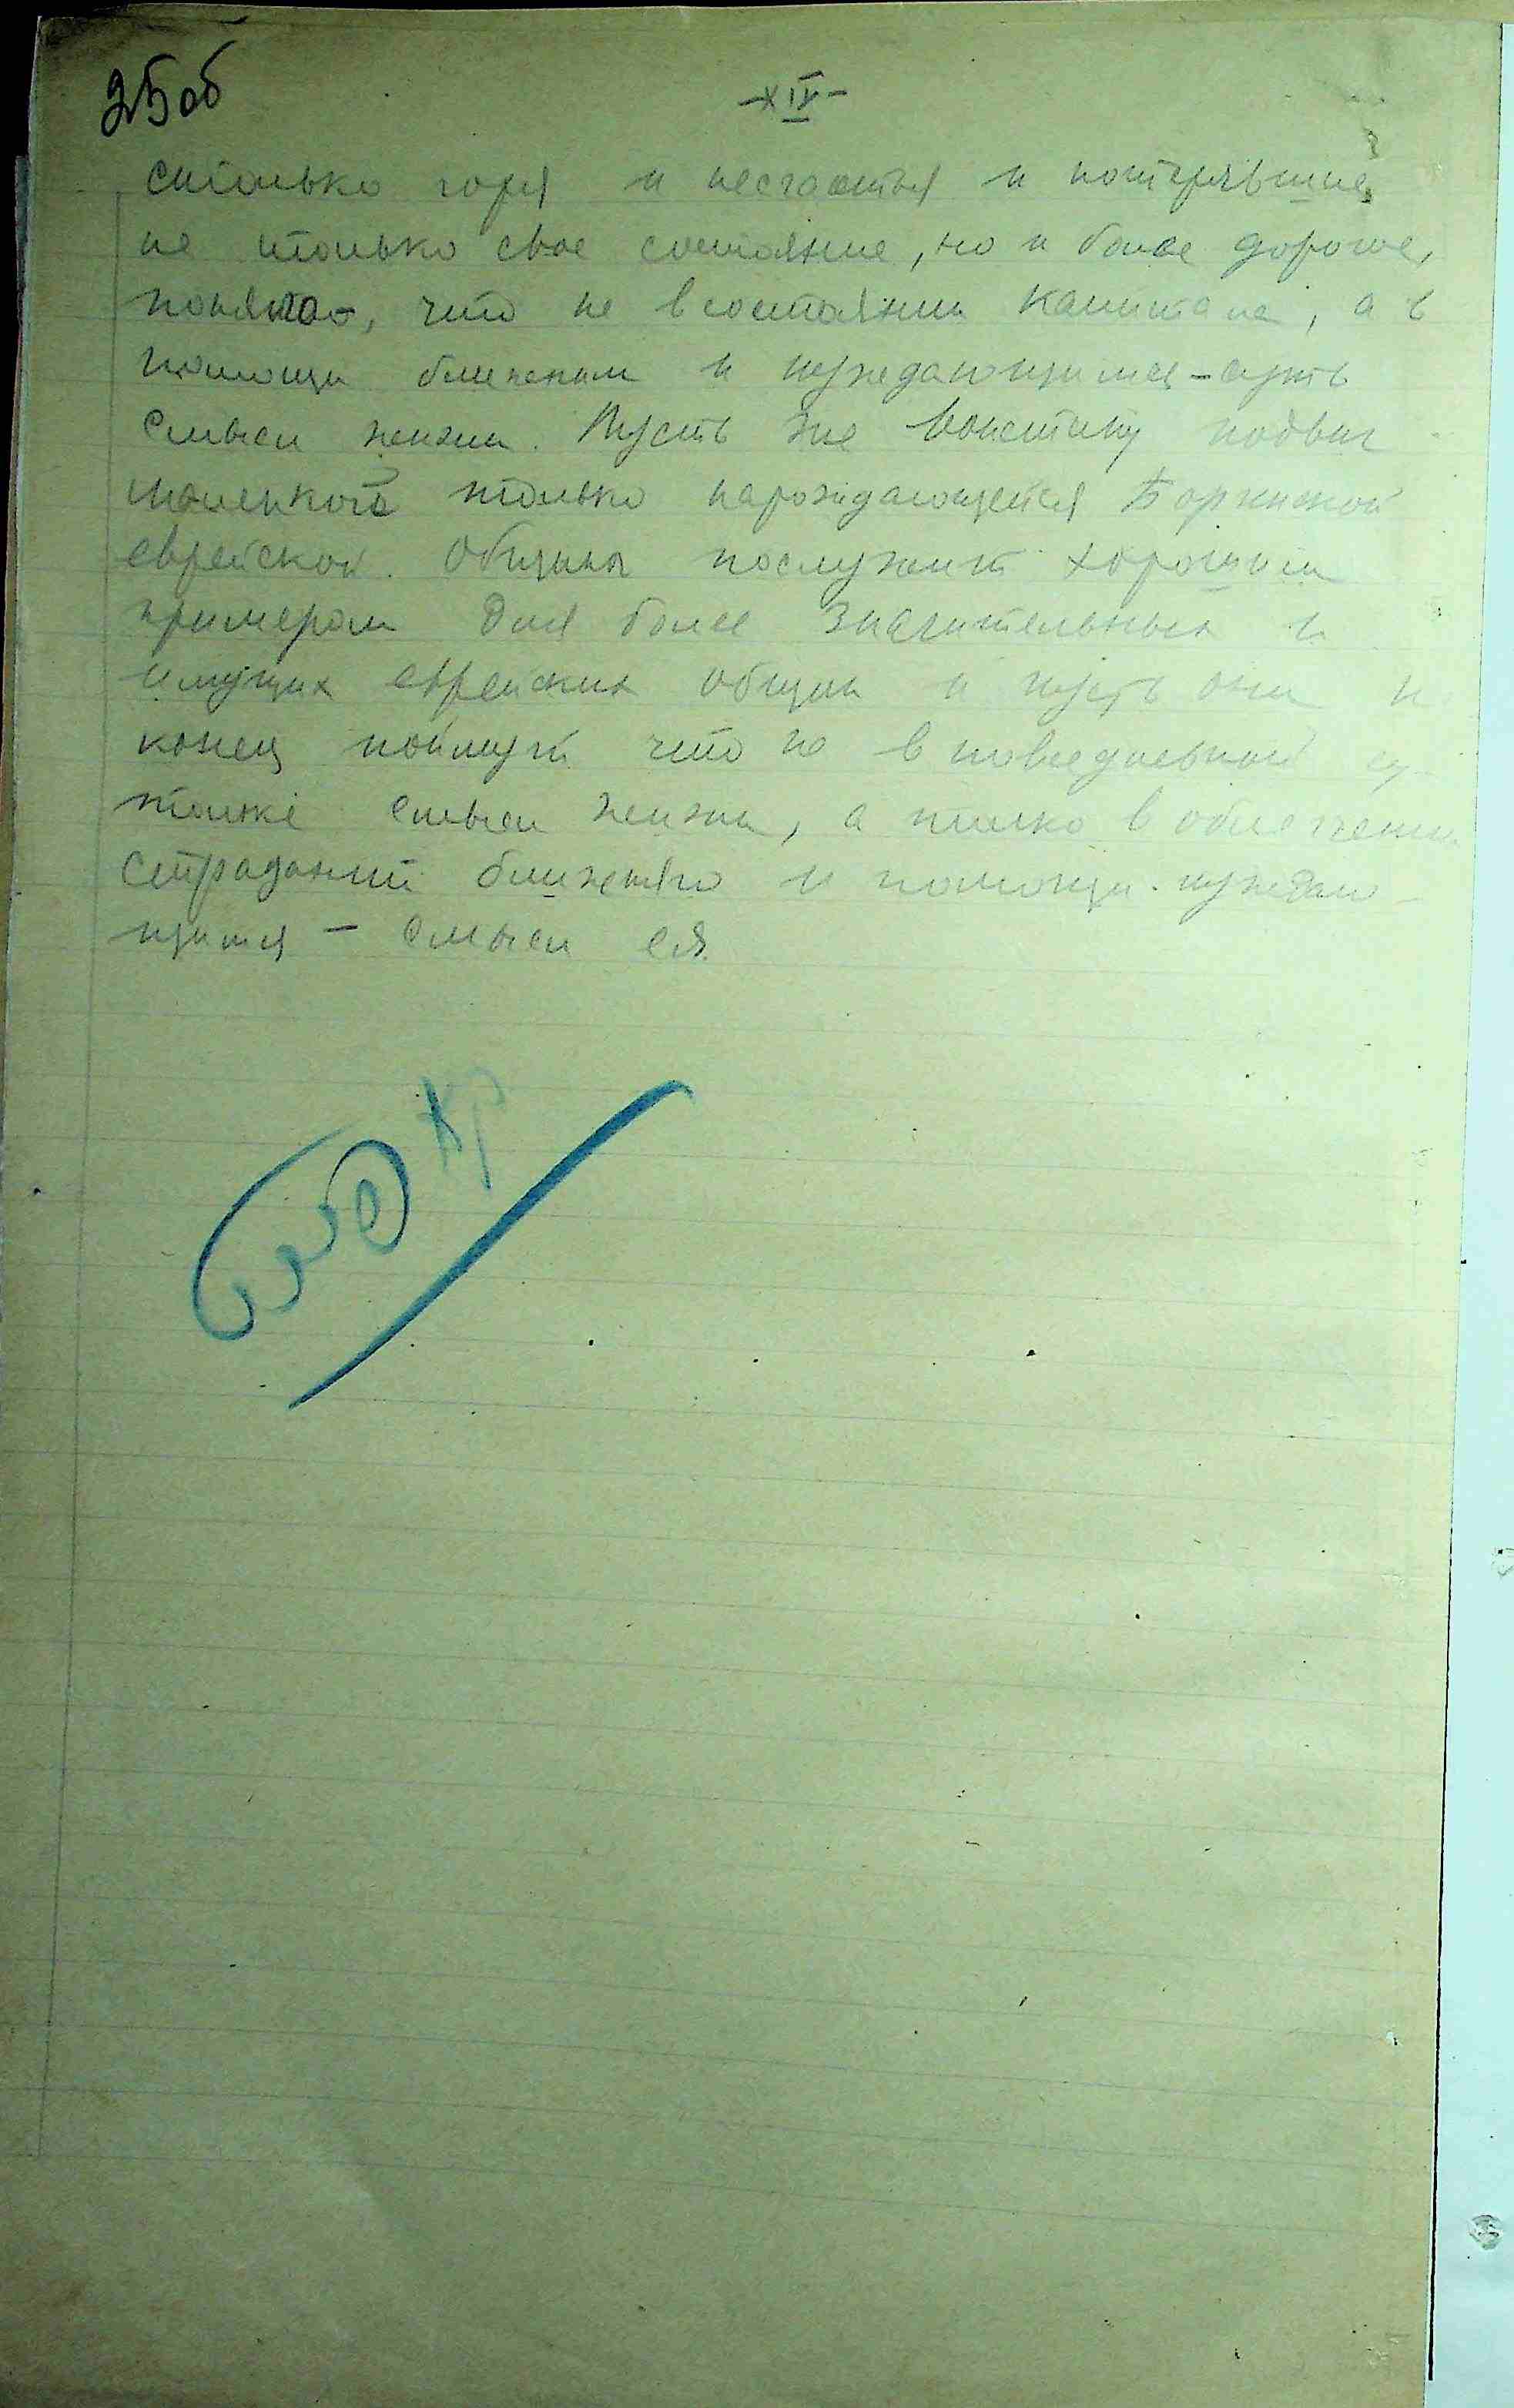 25об
-XIV-
столько горя и несчастья и потерявшие
не только свое состояние, но и более дорогое,
понято, что не в состоянии капитала, а в
помощи ближеним и нуждающимся - суть
смысл жизни. Пусть же воистину подвиг
маленькой только нарождающейся Борзинской
еврейской общины послужит хорошим
примером для более значительных и
имущих еврейских общин и пусть они н
конец поймут что не в повседневной су-
толоке смысл жизни, а только в облегчении
страданий ближняго и помощи нуждаю-
щимся - смысл ея.